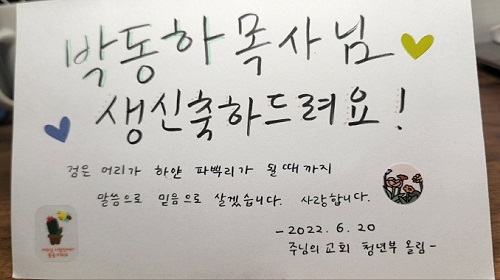 박동하목사님
생신축하드려요!
검은 머리가 하얀 파뿌리가 될때까지
말씀으로 믿음으로 살겠습니다. 사랑합니다.
-2022. 6. 20
주님의교회 청년부 올림-